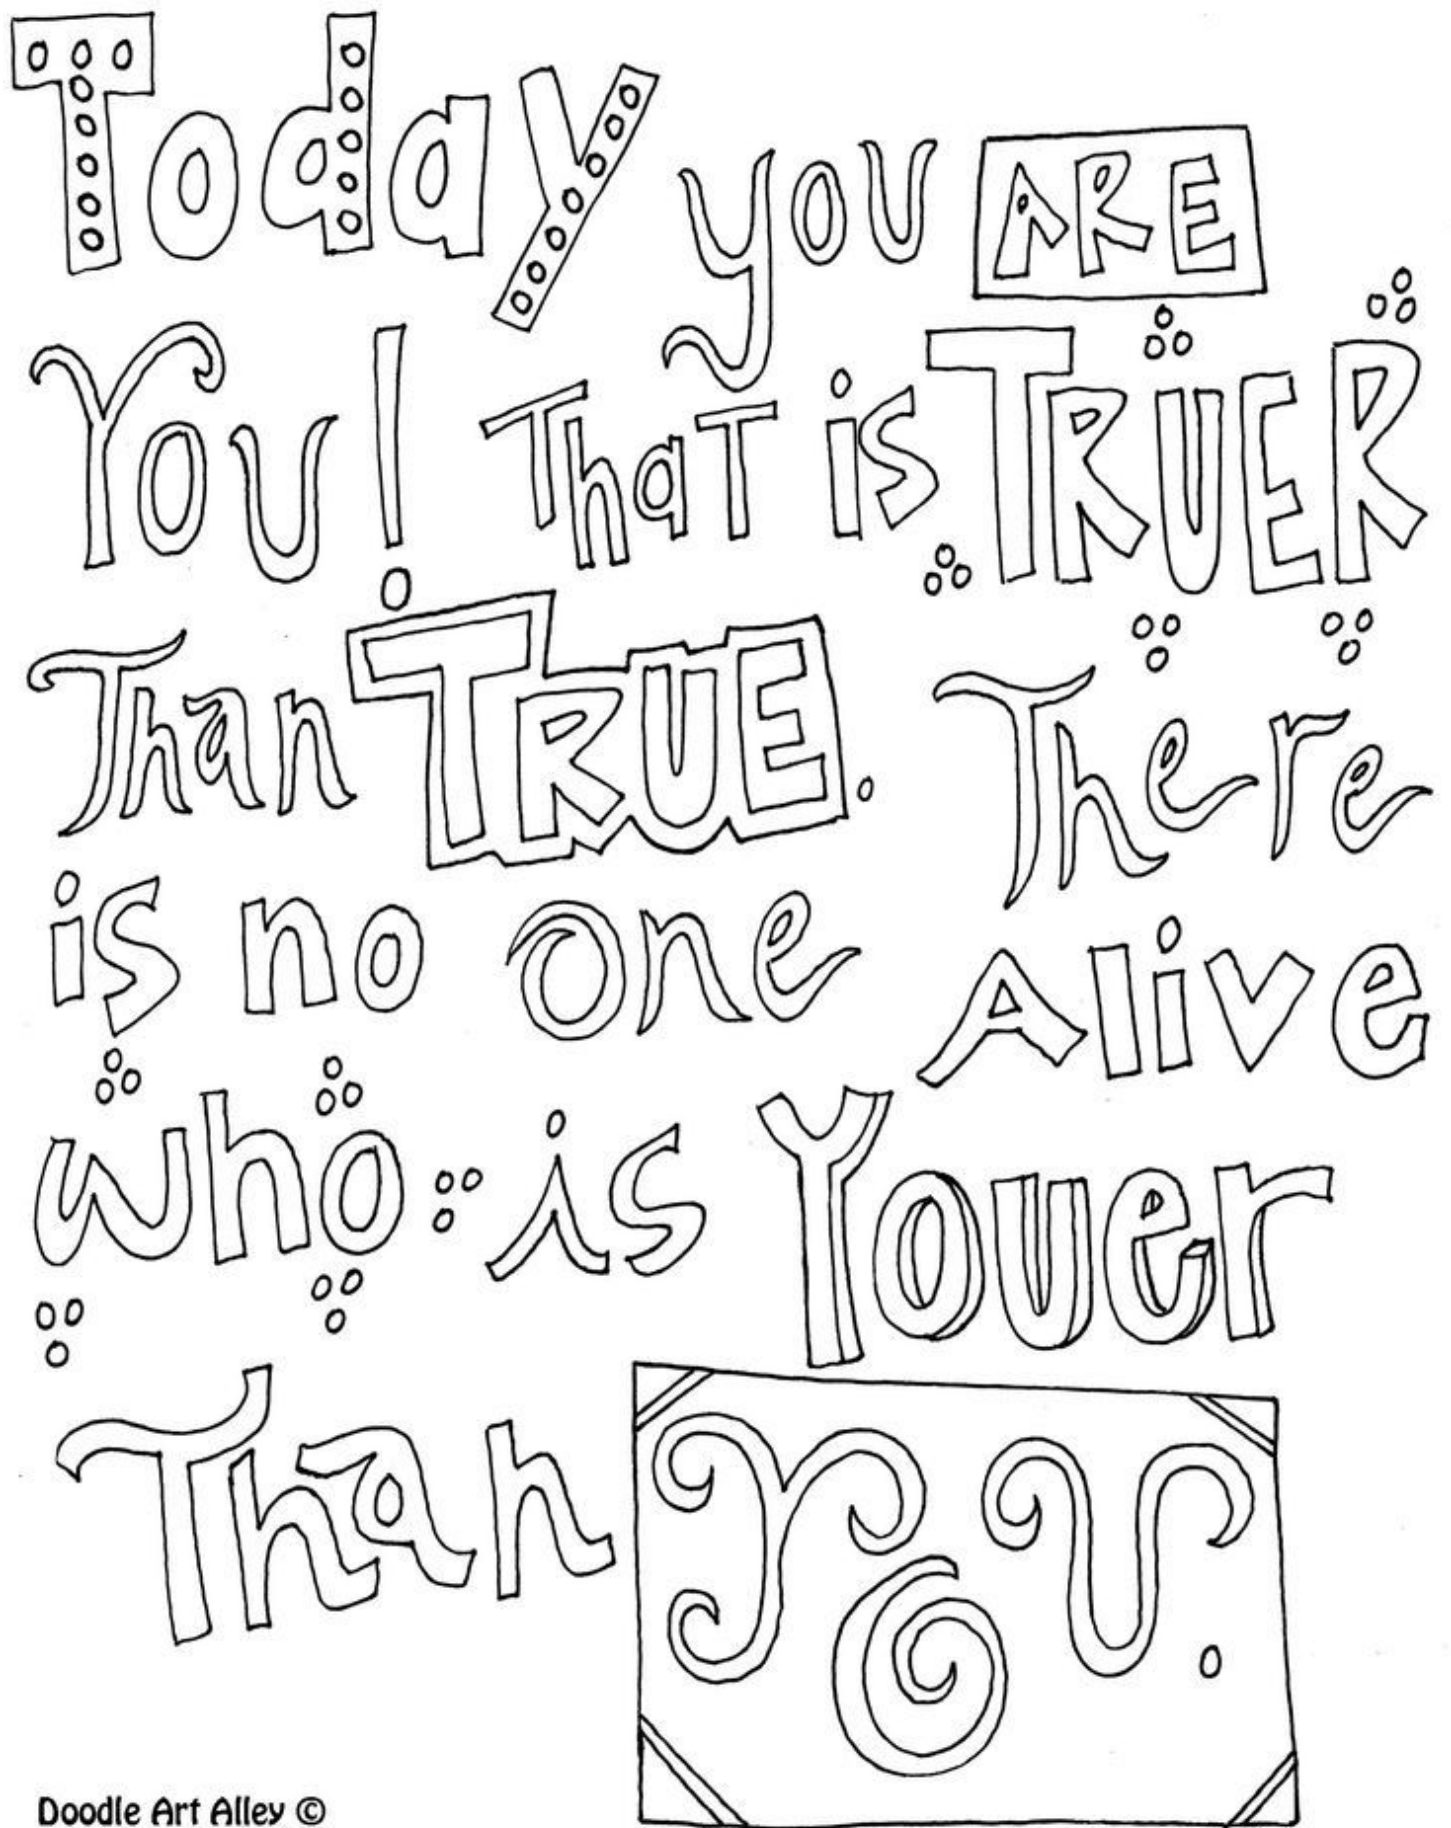 Today you ARE
You! That is TRUER
Than TRUE. There
is no one Alive
who is Youer
Than you.
Doodle Art Alley ©